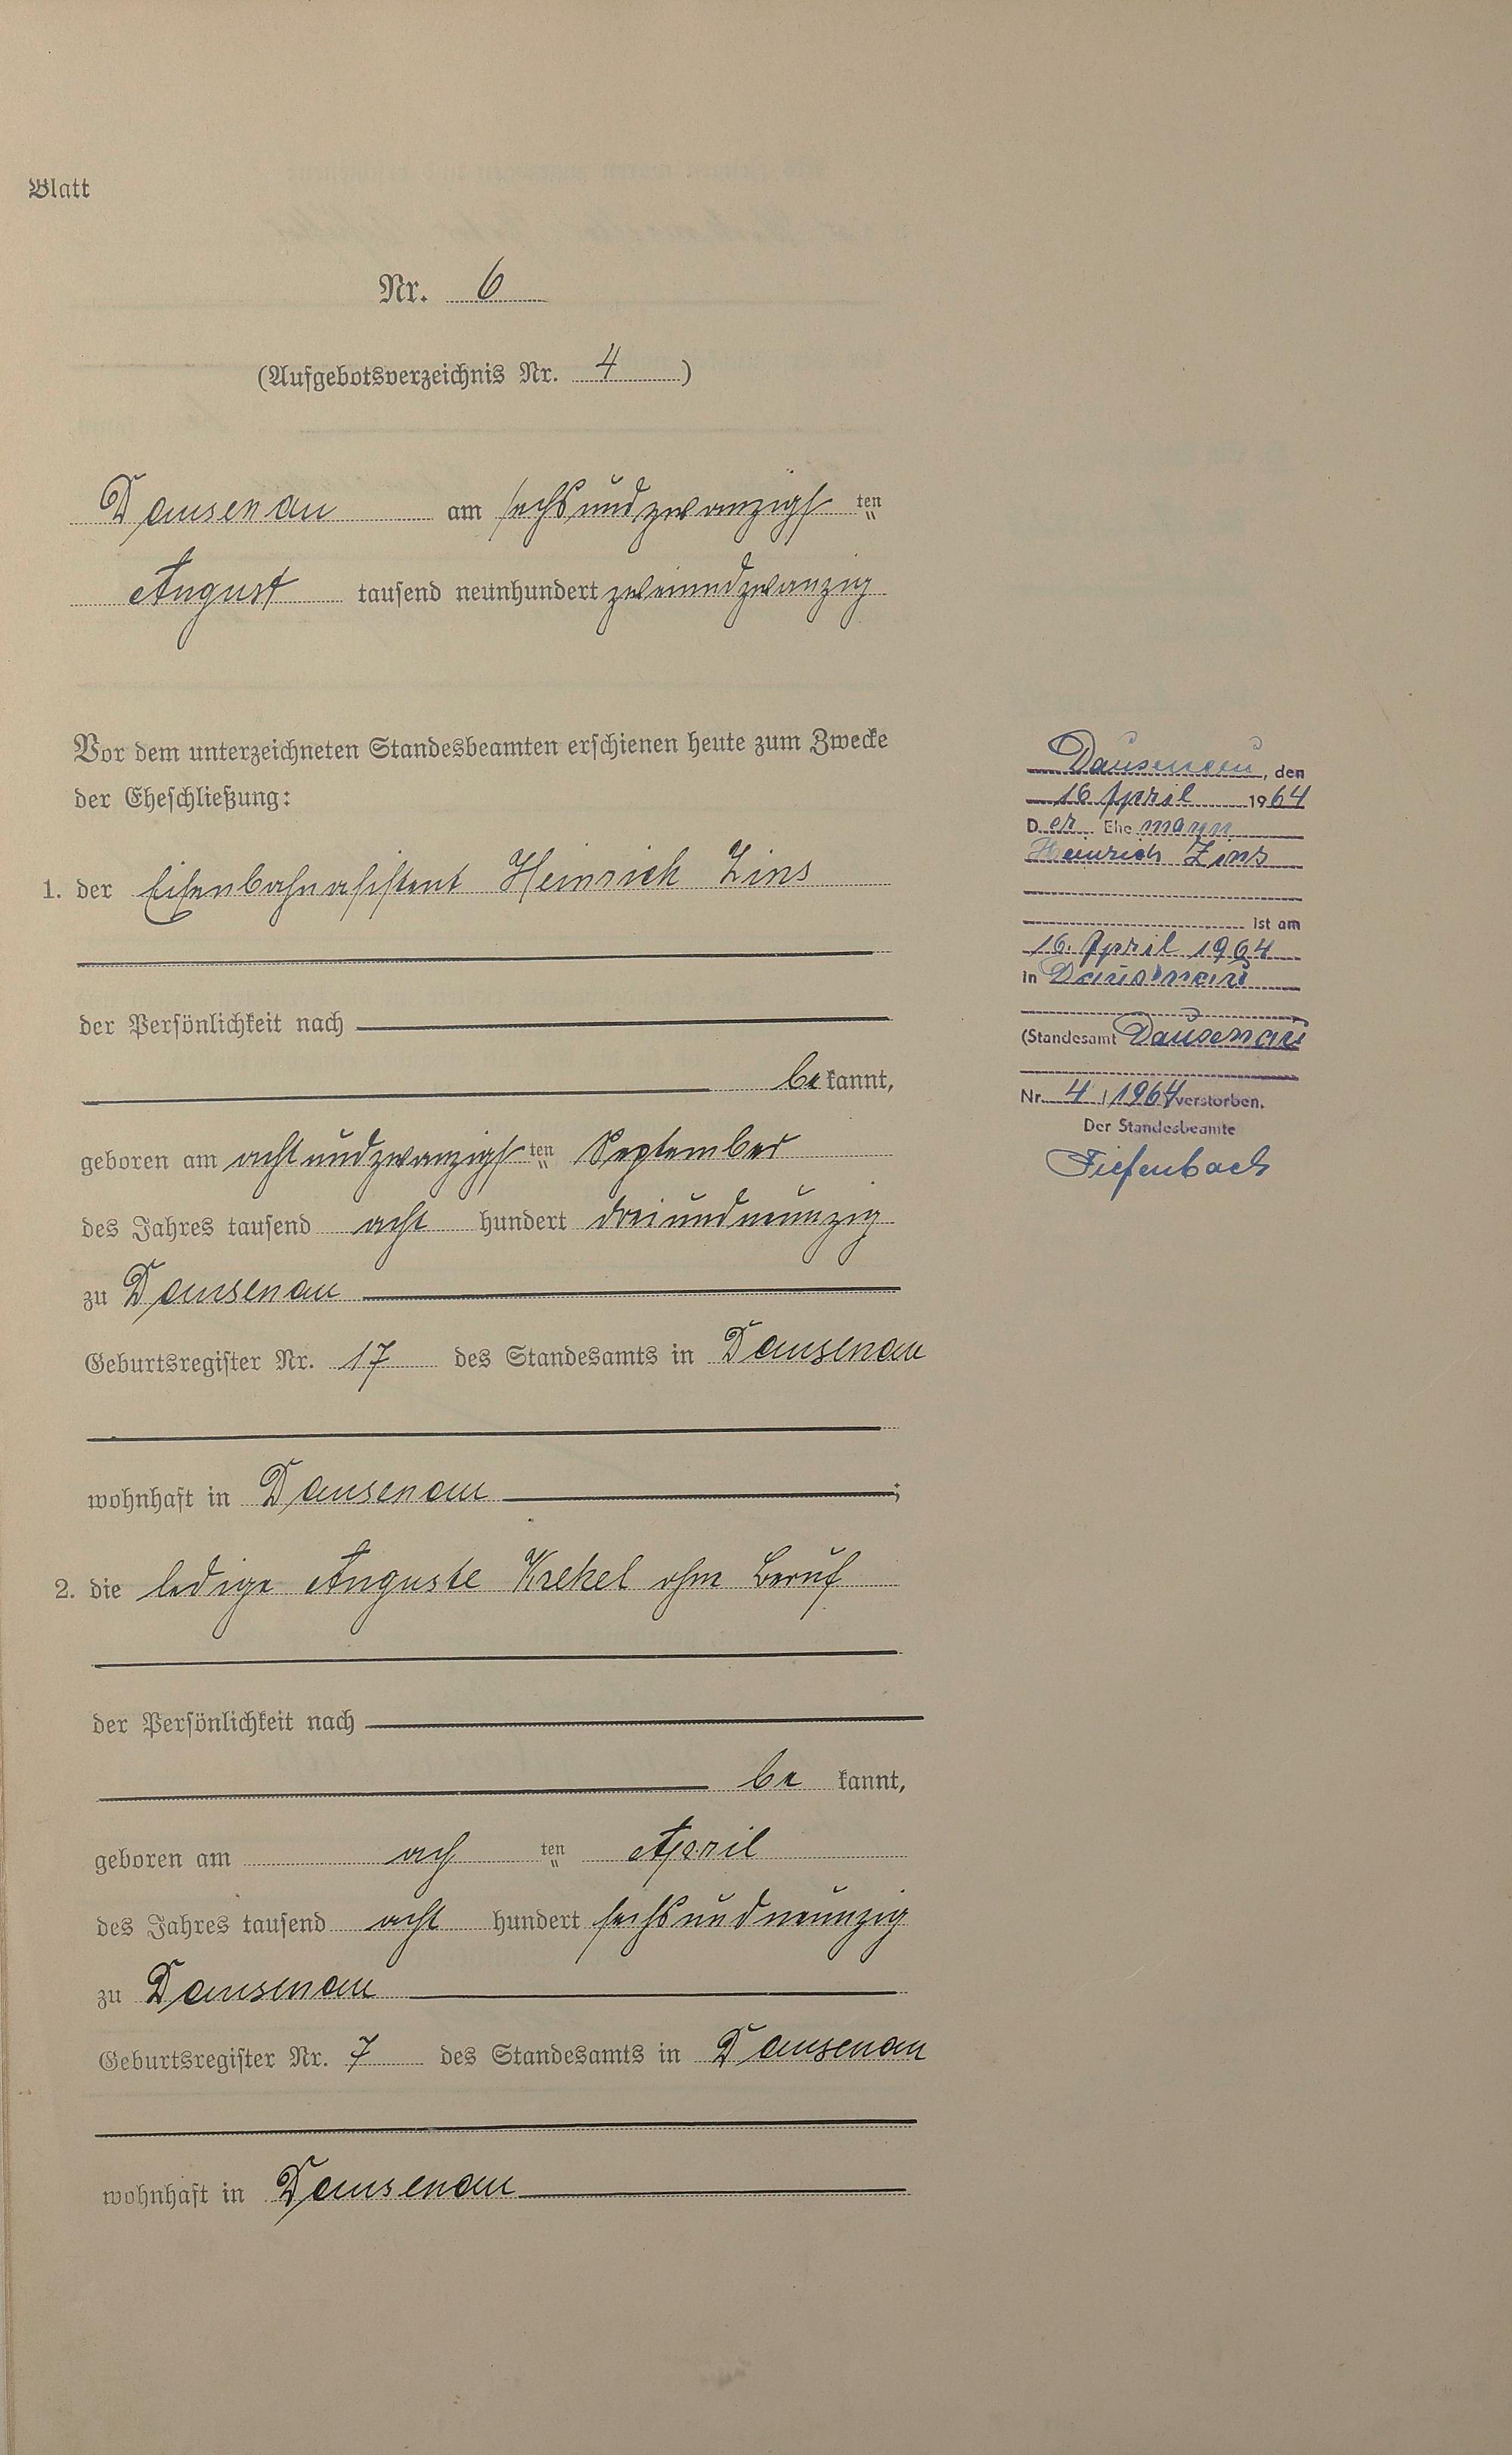 Blatt
Nr. 6
(Aufgebotsverzeichnis Nr. 4)
Dausenau am sechsundzwanzigsten
August tausend neunhundert zweiundzwanzig
Vor dem unterzeichneten Standesbeamten erschienen heute zum Zwecke
der Eheschließung:
1. der Eisenbahnassistent Heinrich Zins
der Persönlichkeit nach
bekannt,
geboren am achtundzwanzigsten September
des Jahres tausend acht hundert dreiundneunzig
zu Dausenau
Geburtsregister Nr. 17 des Standesamts in Dausenau
wohnhaft in Dausenau;
2. die ledige Auguste Krekel ohne Beruf
der Persönlichkeit nach
bekannt,
geboren am achten April
des Jahres tausend acht hundert sechsundneunzig
zu Dausenau
Geburtsregister Nr. 7 des Standesamts in Dausenau
wohnhaft in Dausenau
Dausenau, den
16 April 1964
Der Ehemann
Heinrich Zins
ist am
16. April 1964
in Dausenau
(Standesamt Dausenau
Nr. 4/1964) verstorben.
Der Standesbeamte
Tiefenbach